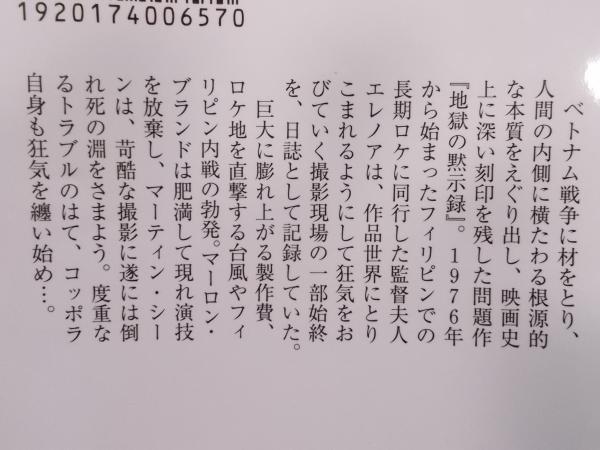 1920174006570
ベトナム戦争に材をとり、
人間の内側に横たわる根源的
な本質をえぐり出し、映画史
上に深い刻印を残した問題作
『地獄の黙示録』。1976年
から始まったフィリピンでの
長期ロケに同行した監督夫人
エレノアは、作品世界にとり
こまれるようにして狂気をお
びていく撮影現場の一部始終
を、日誌として記録していた。
巨大に膨れ上がる製作費、
ロケ地を直撃する台風やフィ
リピン内戦の勃発。マーロン・
ブランドは肥満して現れ演技
を放棄し、マーティン・シー
ンは、苛酷な撮影に遂には倒
れ死の淵をさまよう。度重な
るトラブルのはて、コッポラ
自身も狂気を纏い始め…。